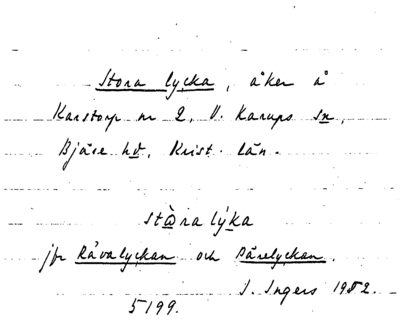 Stora lycka, åker å
Karstorp nr 2, V. Karups sn,
Bjäre hd, Krist. län.
stòra lýka
jfr Råvalyckan och Pärelyckan.
I. Ingers 1952.
5199.